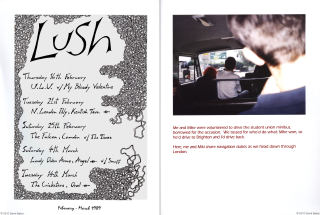 Lush
Thursday 16th February
U.L.U. w/ My Bloody Valentine
Tuesday 21st February
N. London Poly, Kentish Town
Saturday 25th February
The Falcon, Camden
Saturday 4th March
Lady Owen Arms, Angel
Tuesday 14th March
The Cricketers, Oval
February - March 1989
Me and Mike were volunteered to drive the student union minibus,
borrowed for the occasion. We raced for who'd do what; Mike won, so
he'd drive to Brighton and I'd drive back.
Here, me and Miki share navigation duties as we head down through
London.